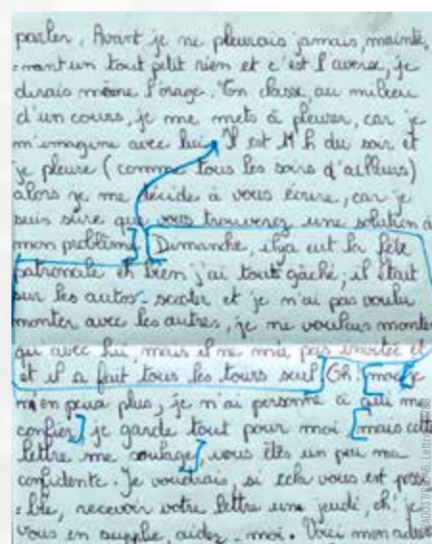 parler. Avant je ne pleurais jamais, mainte,
-nant un tout petit rien et c'est l'averse, je
dirais même l'orage. En classe, au milieu
d'un cours, je me mets à pleurer, car je
m'imagine avec lui. Il est 11 h du soir et
je pleure (comme tous les soirs d'ailleurs)
alors je me décide à vous écrire, car je
suis sûre que vous trouverez une solution à
mon problème. Dimanche, il y a eut la fête
patronale eh bien j'ai tout gâché, il était
sur les autos-scooter et je n'ai pas voulu
monter avec les autres, je ne voulais monter
qu'avec lui, mais il ne m'a pas invitée et
et il a fait tous les tours seul. Oh! moi je
n'en peux plus, je n'ai personne à qui me
confier, je garde tout pour moi mais cette
lettre me soulage, vous êtes un peu ma
confidente. Je voudrais, si cela vous est possi
-ble, recevoir votre lettre un jeudi, oh! je
vous en supplie, aidez-moi. Voici mon